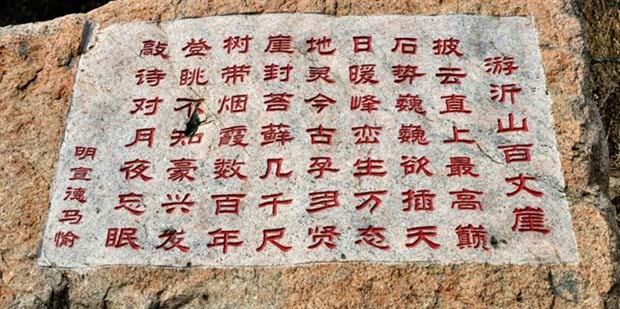 游沂山百丈崖
披云直上最高巅
石势巍巍欲插天
日暖峰峦生万态
地灵今古孕多贤
崖封苔藓几千尺
树带烟霞数百年
登眺不知豪兴发
敲待对月夜忘眠
明宣德马愉